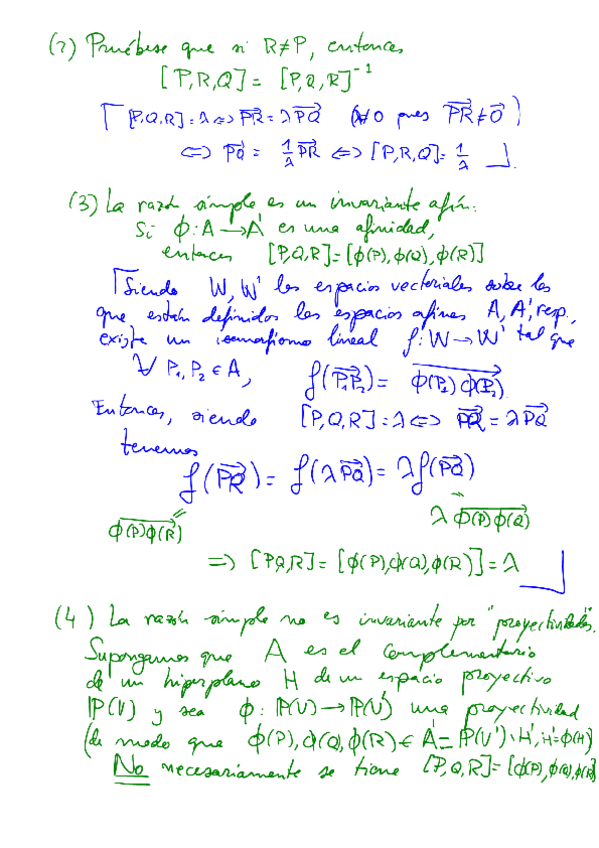 (2) Pruébese que si R≠P, entonces
[P,R,Q] = [P,Q,R]⁻¹
[P,Q,R]=λ ⇔ PR = λPQ (λ≠0 pues PR≠O)
⇔ PQ = 1/λ PR ⇔ [P,R,Q] = 1/λ
(3) La razón simple es un invariante afín:
Si ϕ: A → A' es una afinidad,
entonces [P,Q,R]=[ϕ(P),ϕ(Q),ϕ(R)]
Siendo W, W' los espacios vectoriales sobre los
que están definidos los espacios afines A, A', resp.,
existe un isomorfismo lineal f: W → W' tal que
∀ P₁, P₂ ∈ A, f(P₁P₂) = ϕ(P₁)ϕ(P₂)
Entonces, siendo [P,Q,R]=λ ⇔ PR = λPQ
tenemos
f(PR) = f(λPQ) = λf(PQ)
ϕ(P)ϕ(R) = = λϕ(P)ϕ(Q)
⇒ [P,Q,R] = [ϕ(P),ϕ(Q),ϕ(R)] = λ
(4) La razón simple no es invariante por "proyectividades".
Supongamos que A es el complementario
de un hiperplano H de un espacio proyectivo
P(V) y sea ϕ: P(V) → P(V') una proyectividad
(de modo que ϕ(P), ϕ(Q), ϕ(R) ∈ A' = P(V')∖H', H'=ϕ(H)
No necesariamente se tiene [P,Q,R]=[ϕ(P),ϕ(Q),ϕ(R)]